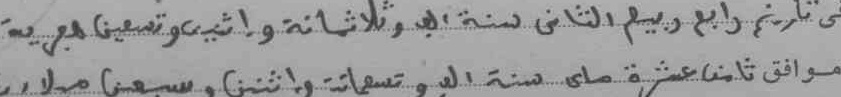 فى تاريخ رابع ربيع الثانى سنة الف وثلاثمائة واثنين وتسعين هجرية
موافق ثامن عشرة ماى سنة الف وتسعمائة واثنين وسبعين ميلاد